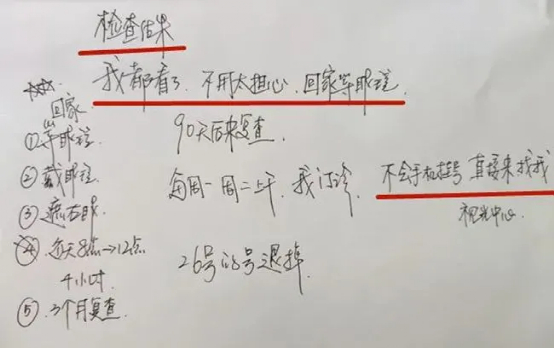 检查结果
我都看了.不用太担心.回家等眼镜.
☆☆☆
回家
①等眼镜
90天后来复查.
②戴眼镜
每周一周二上午.我门诊.
不会手机挂号 直接来找我
视光中心.
③遮右眼
④每天8点→12点
4小时.
26号的号退掉.
⑤.3个月复查.